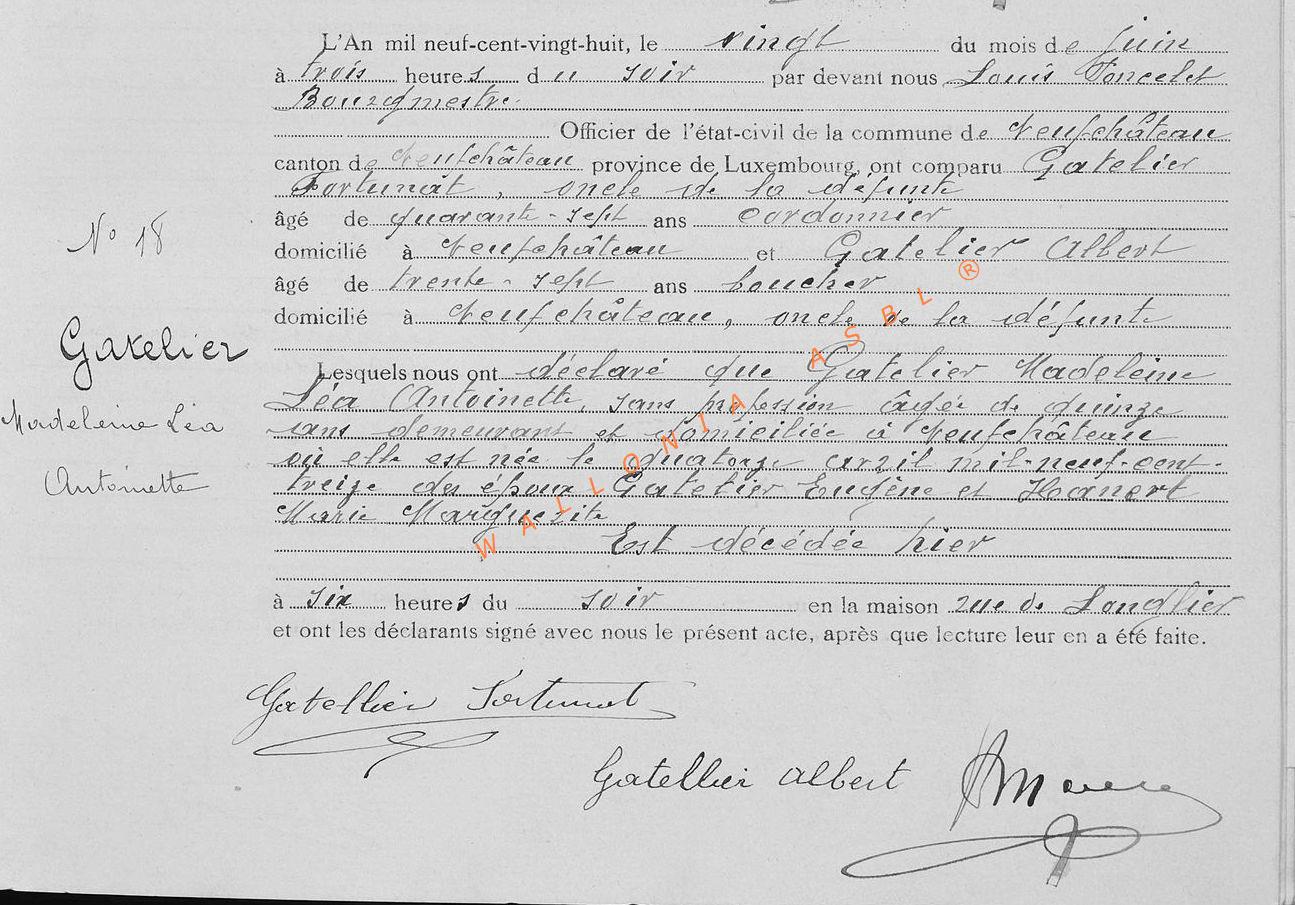 L'An mil neuf-cent-vingt-huit, le vingt du mois de juin
à trois heures du soir par devant nous Louis Poncelet
Bourgmestre
Officier de l'état-civil de la commune de Neufchâteau
canton de Neufchâteau province de Luxembourg, ont comparu Gatelier
Fortunat, oncle de la défunte
âgé de quarante-sept ans cordonnier
N° 18
domicilié à Neufchâteau et Gatelier Albert
âgé de trente-sept ans boucher
domicilié à Neufchâteau, oncle de la défunte
Gatelier
Madeleine Léa
Antoinette
Lesquels nous ont déclaré que Gatelier Madeleine
Léa Antoinette, sans profession âgée de quinze
ans demeurant et domiciliée à Neufchâteau
où elle est née le quatorze avril mil-neuf-cent-
treize des époux Gatelier Eugène et
Marie Marguerite
Est décédée hier
à six heures du soir en la maison rue de Longlier
et ont les déclarants signé avec nous le présent acte, après que lecture leur en a été faite.
Gatellier Fortunat
Gatellier Albert
WALLONIA ASBL ®